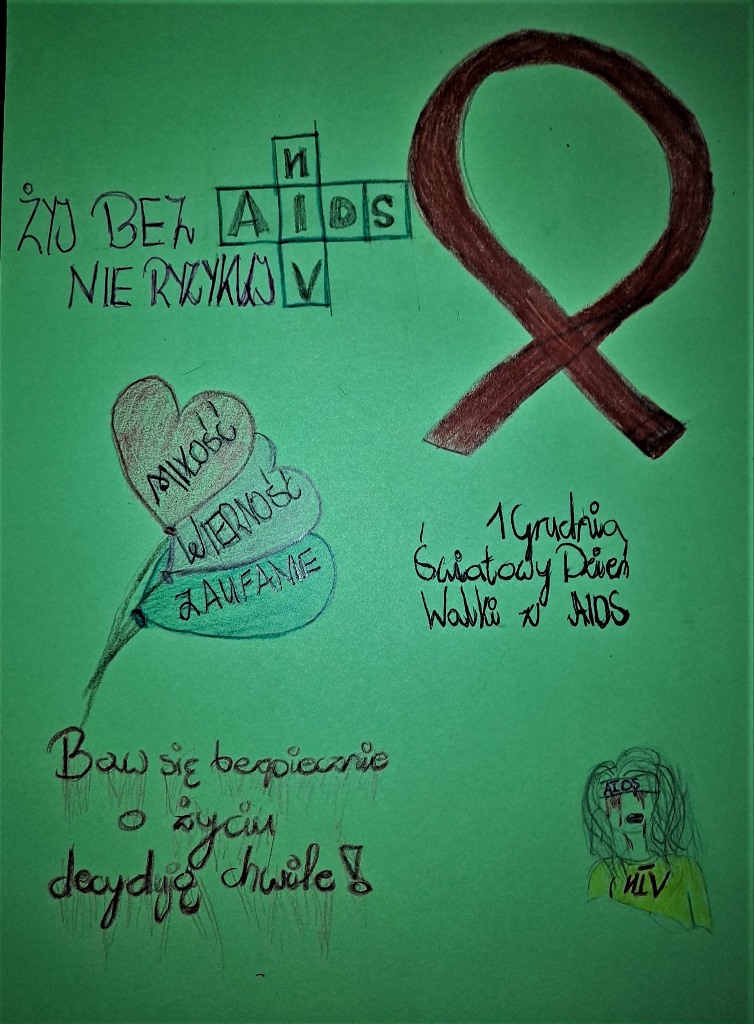 ŻYJ BEZ AIDS
NIE RYZYKUJ HIV
MIŁOŚĆ
WIERNOŚĆ
ZAUFANIE
1 Grudnia
Światowy Dzień
Walki z AIDS
Baw się bezpiecznie
o życiu
decydują chwile!
AIDS
HIV